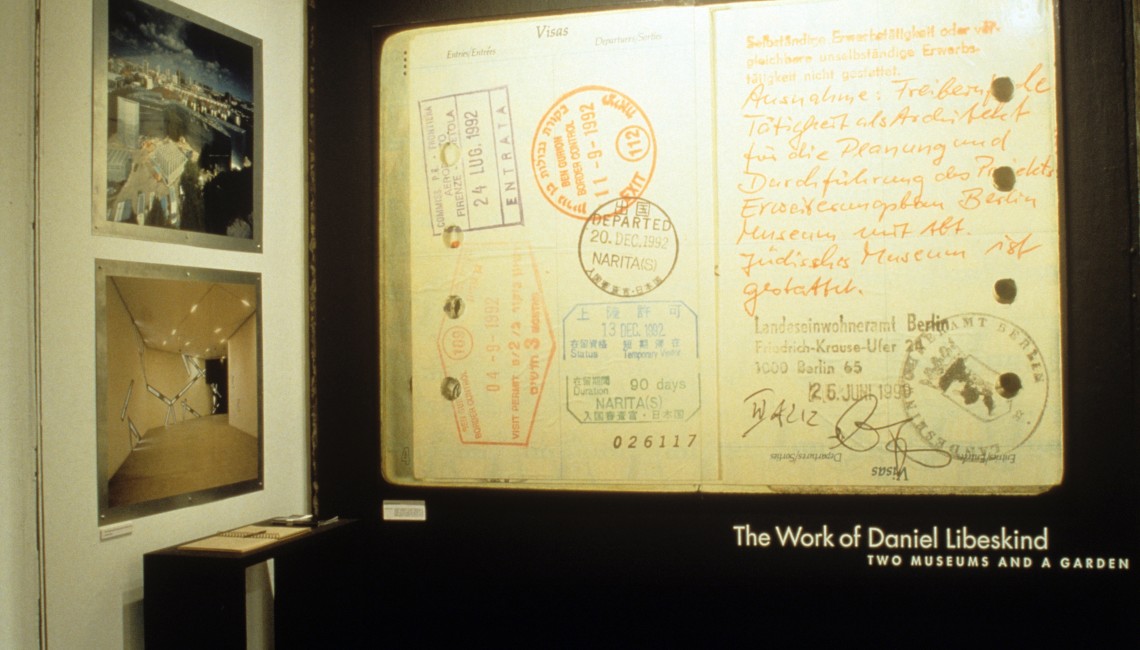 Visas
Entries/Entrées
Departures/Sorties
AEROPORTO
FIRENZE
24 LUG. 1992
ENTRATA
ביקורת גבולות
BEN GURION
BORDER CONTROL
11-9-1992
112
EXIT
出国
DEPARTED
20. DEC. 1992
NARITA(S)
入国審査官・日本国
160
BORDER CONTROL
04-9-1992
VISIT PERMIT
3 MONTHS
上陸許可
13 DEC. 1992
在留資格
Status
短期滞在
Temporary Visitor
在留期間
Duration
90 days
NARITA(S)
入国審査官・日本国
026117
Selbständige Erwerbstätigkeit oder ver-
gleichbare unselbständige Erwerbs-
tätigkeit nicht gestattet.
Ausnahme: Freiberufliche
Tätigkeit als Architekt
für die Planung und
Durchführung des Projekts
Erweiterungsbau Berlin
Museum mit Abt.
Jüdisches Museum ist
gestattet.
Landeseinwohneramt Berlin
Friedrich-Krause-Ufer 24
1000 Berlin 65
26. JUNI 1990
LANDESEINWOHNERAMT BERLIN
Entries/Entrées
Departures/Sorties
Visas
The Work of Daniel Libeskind
TWO MUSEUMS AND A GARDEN